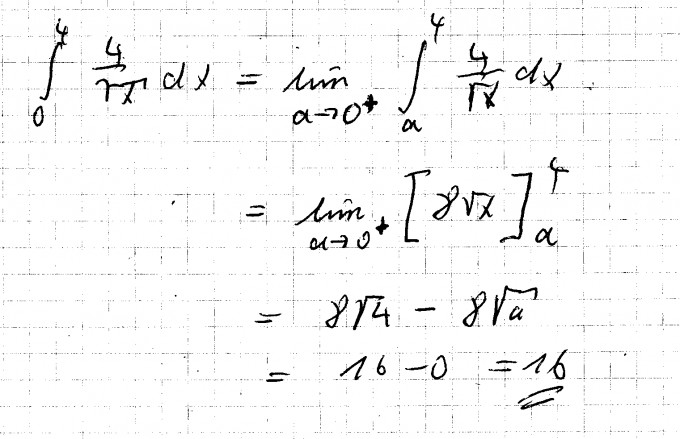 ∫₀⁴ 4/√x dx = lim a→0⁺ ∫ₐ⁴ 4/√x dx
= lim a→0⁺ [8√x]ₐ⁴
= 8√4 − 8√a
= 16 − 0 = 16